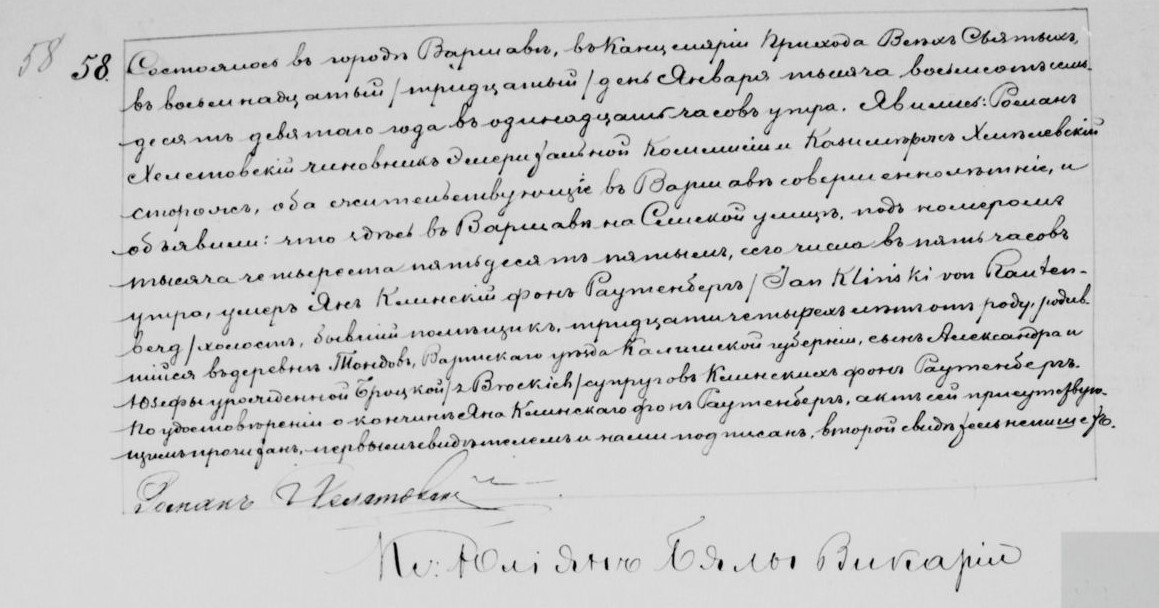 58 58. Состоялось въ городѣ Варшавѣ, въ Канцеляріи Прихода Всѣхъ Святыхъ,
въ восемнадцатый /тридцатый/ день Января тысяча восемьсотъ семь-
десятъ девятаго года въ одинадцать часовъ утра. Явились: Романъ
Хелстовскій чиновникъ Эмеритальной Коммисіи и Казимѣръ Хмѣлевскій
сторожъ, оба жительствующіе въ Варшавѣ совершеннолѣтніе, и
объявили: что здѣсь въ Варшавѣ на Сѣнской улицѣ, подъ номеромъ
тысяча четыреста пятьдесятъ пятымъ, сего числа въ пять часовъ
утра, умеръ Янъ Клинскій фонъ Раутенбергъ /Jan Kliński von Rauten-
berg/ холостъ, бывшій помѣщикъ, тридцати четырехъ лѣтъ отъ роду, родив-
шійся въ деревнѣ Тондовъ, Вартскаго уѣзда Калишской губерніи, сынъ Александра и
Юзефы урожденной Броцкой /z Brockich/ супруговъ Клинскихъ фонъ Раутенбергъ.
По удостовѣреніи о кончинѣ Яна Клинскаго фонъ Раутенбергъ, актъ сей присутствую-
щимъ прочитанъ, первымъ свидѣтелемъ и нами подписанъ, второй свидѣтель не пишетъ.
Романъ Хелстовскій
Кс: Юліянъ Бялы Викарій